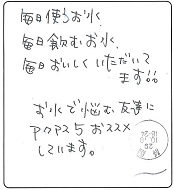 毎日使うお水、
毎日飲むお水、
毎日おいしくいただいて
ます!!
お水で悩む友達に
アクアス5おススメ
しています。